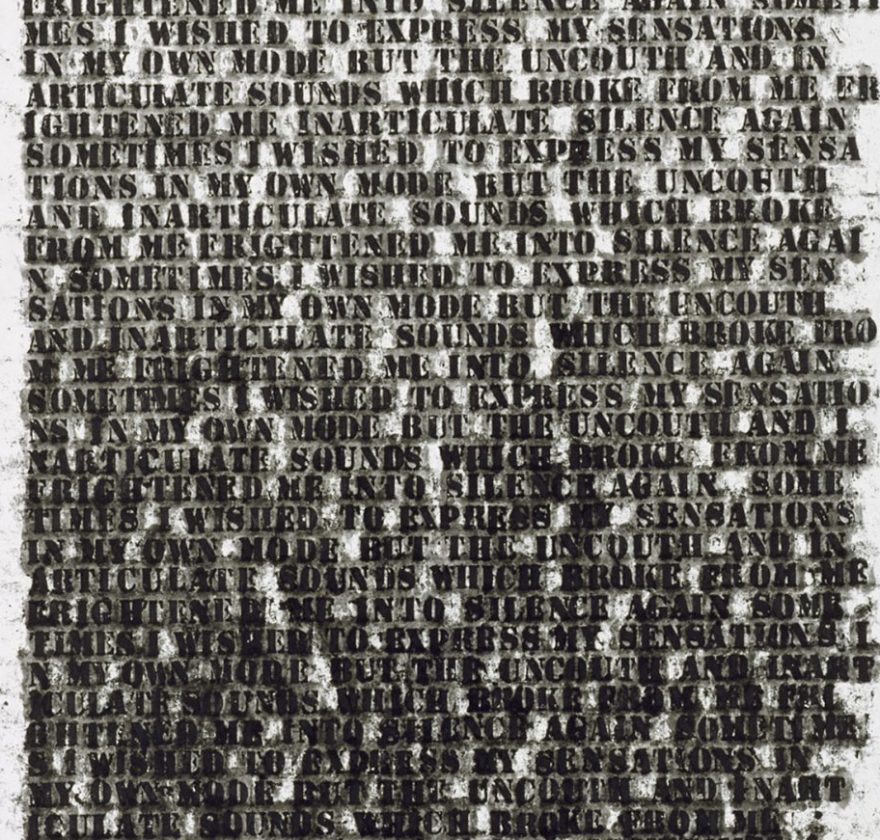 FRIGHTENED ME INTO SILENCE AGAIN SOMETI
MES I WISHED TO EXPRESS MY SENSATIONS
IN MY OWN MODE BUT THE UNCOUTH AND IN
ARTICULATE SOUNDS WHICH BROKE FROM ME FR
IGHTENED ME INARTICULATE SILENCE AGAIN
SOMETIMES I WISHED TO EXPRESS MY SENSA
TIONS IN MY OWN MODE BUT THE UNCOUTH
AND INARTICULATE SOUNDS WHICH BROKE
FROM ME FRIGHTENED ME INTO SILENCE AGAI
N SOMETIMES I WISHED TO EXPRESS MY SEN
SATIONS IN MY OWN MODE BUT THE UNCOUTH
AND INARTICULATE SOUNDS WHICH BROKE FRO
M ME FRIGHTENED ME INTO SILENCE AGAIN
SOMETIMES I WISHED TO EXPRESS MY SENSATIO
NS IN MY OWN MODE BUT THE UNCOUTH AND I
NARTICULATE SOUNDS WHICH BROKE FROM ME
FRIGHTENED ME INTO SILENCE AGAIN SOME
TIMES I WISHED TO EXPRESS MY SENSATIONS
IN MY OWN MODE BUT THE UNCOUTH AND IN
ARTICULATE SOUNDS WHICH BROKE FROM ME
FRIGHTENED ME INTO SILENCE AGAIN SOME
TIMES I WISHED TO EXPRESS MY SENSATIONS I
N MY OWN MODE BUT THE UNCOUTH AND INART
ICULATE SOUNDS WHICH BROKE FROM ME FRI
GHTENED ME INTO SILENCE AGAIN SOMETIME
S I WISHED TO EXPRESS MY SENSATIONS IN
MY OWN MODE BUT THE UNCOUTH AND INART
ICULATE SOUNDS WHICH BROKE FROM ME